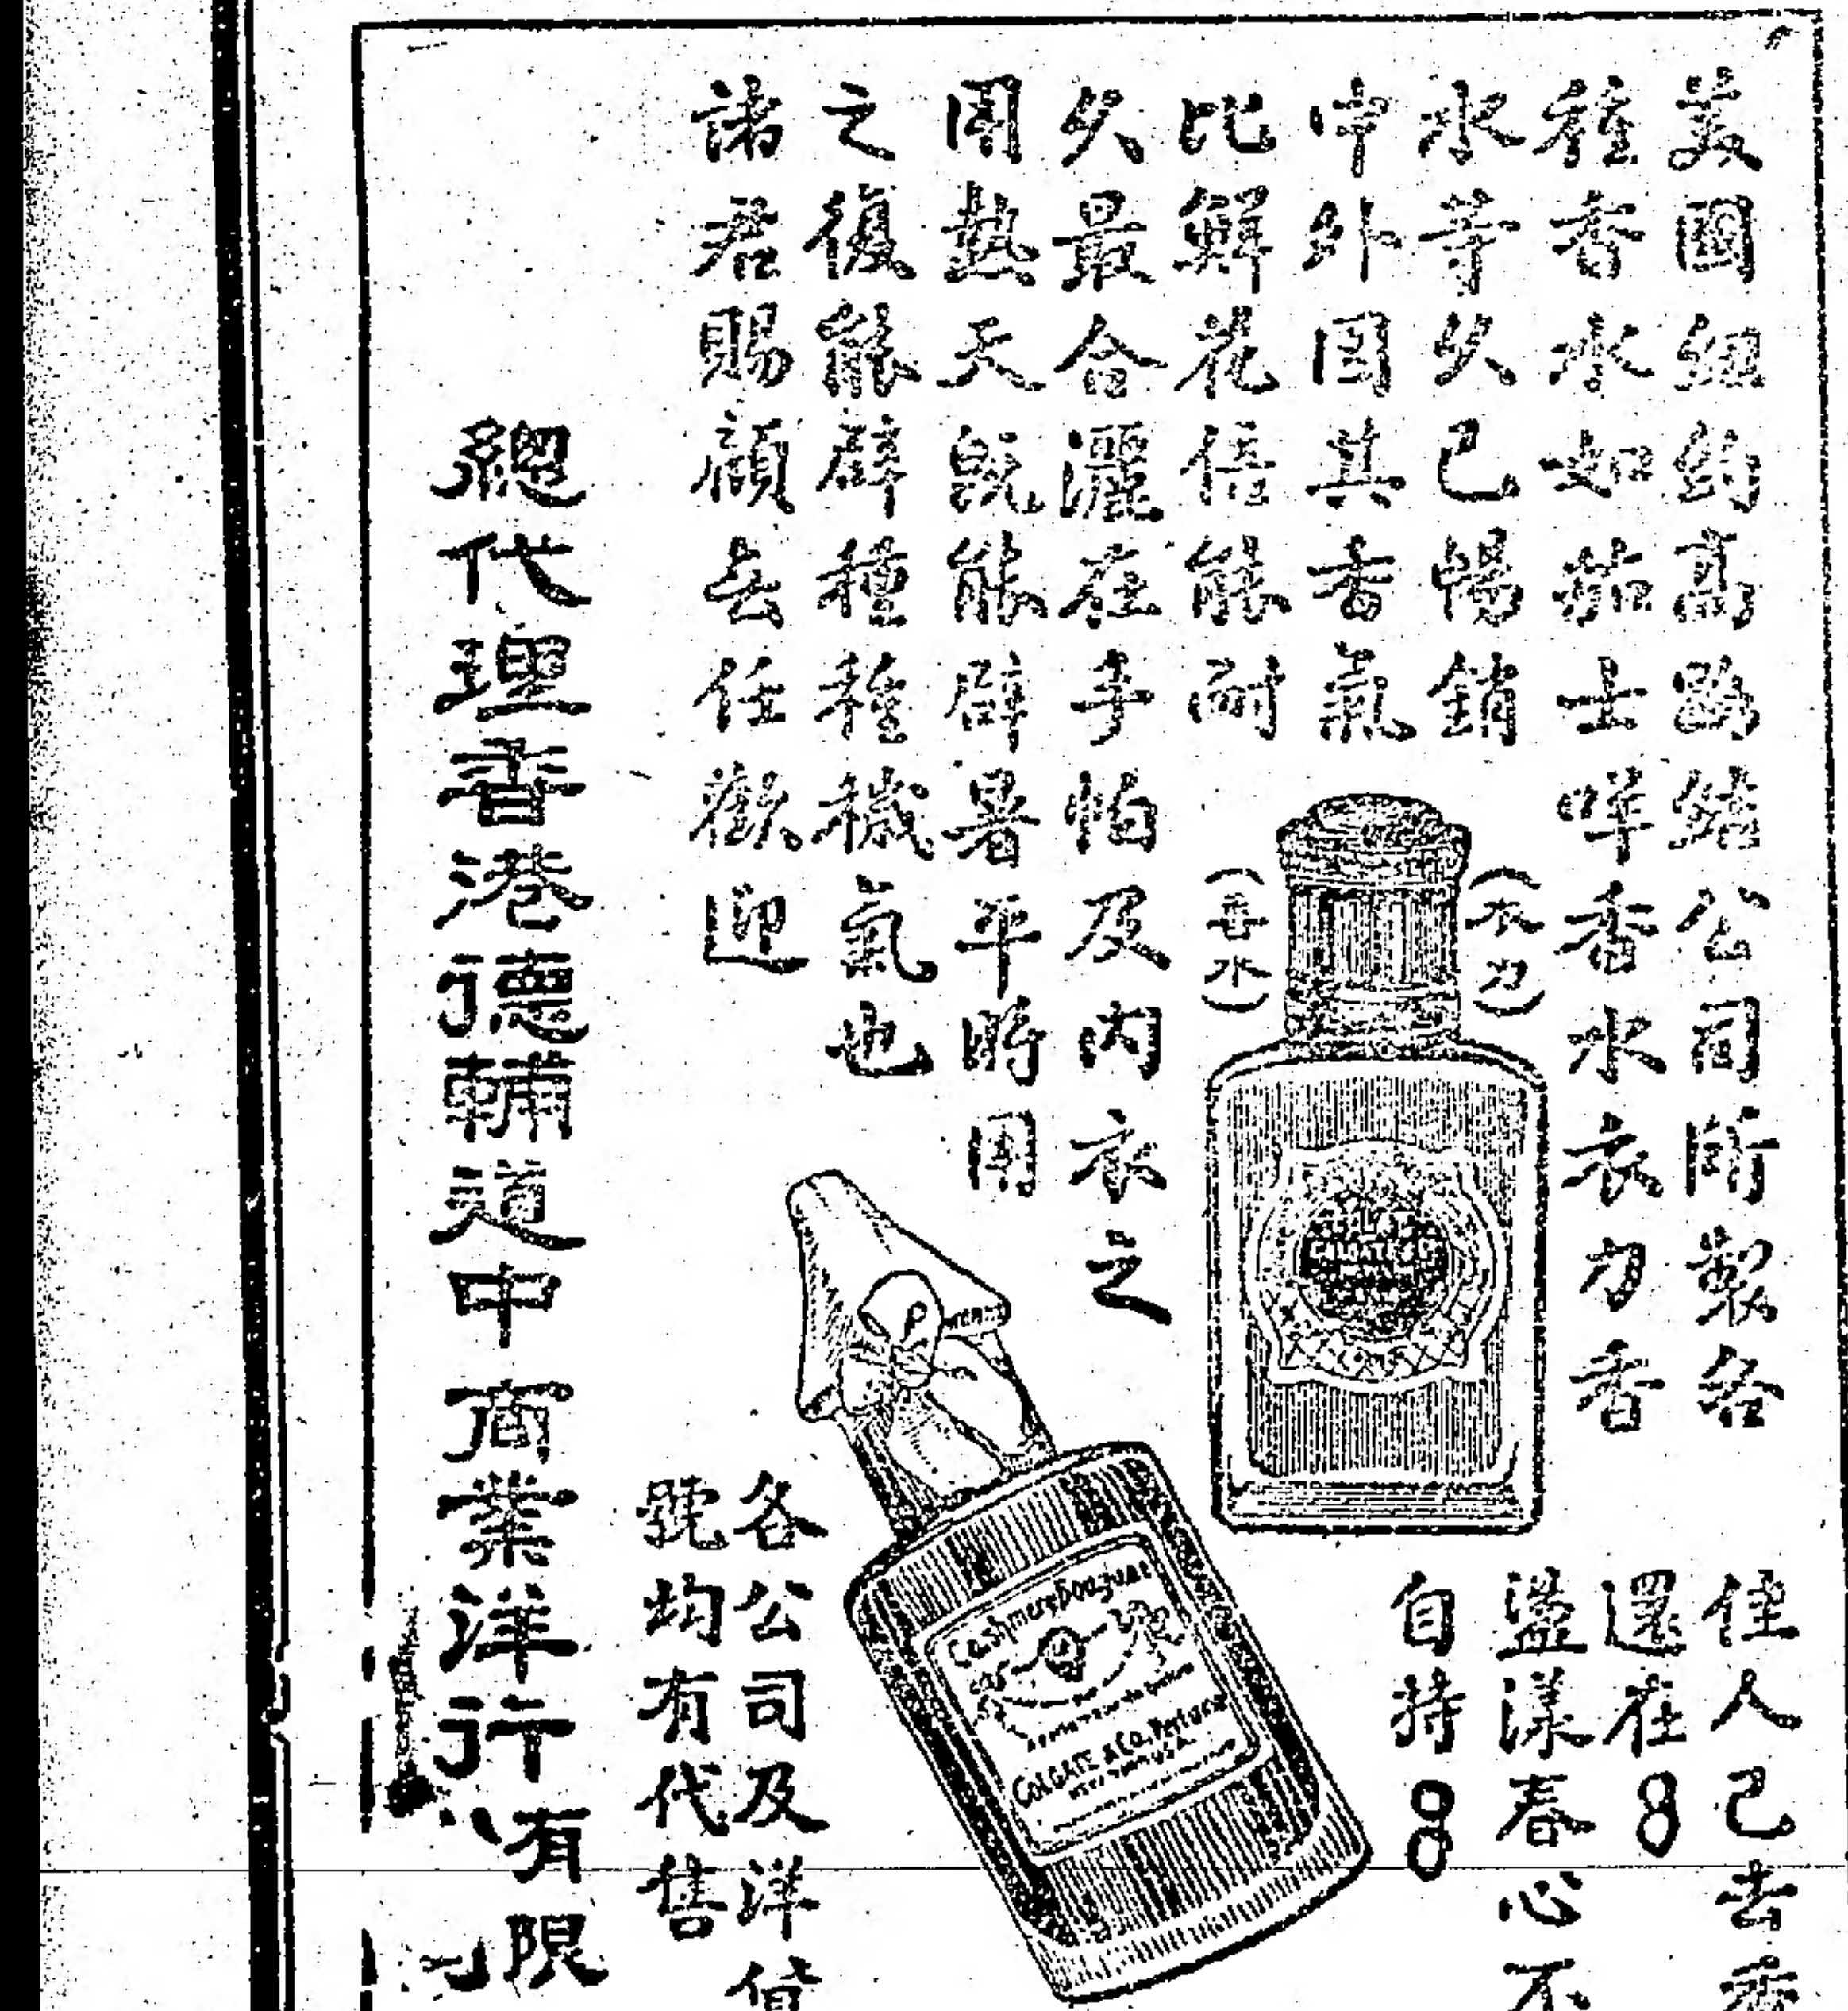 美國紐約高路結公司所製各
種香水如茄士咩香水衣力香
水等久已暢銷
中外因其香氣
比鮮花倍能耐
久最合灑在手帕及內衣之
用熱天既能辟暑平時用
之復能辟種種穢氣也
諸君賜顧無任歡迎
(衣力)
(香水)
佳人已去香
還在
盪漾春心不
自持
Cashmere Bouquet
COLGATE & CO. Perfumers
NEW YORK U.S.A.
各公司及洋貨
號均有代售
總代理香港德輔道中商業洋行
有限